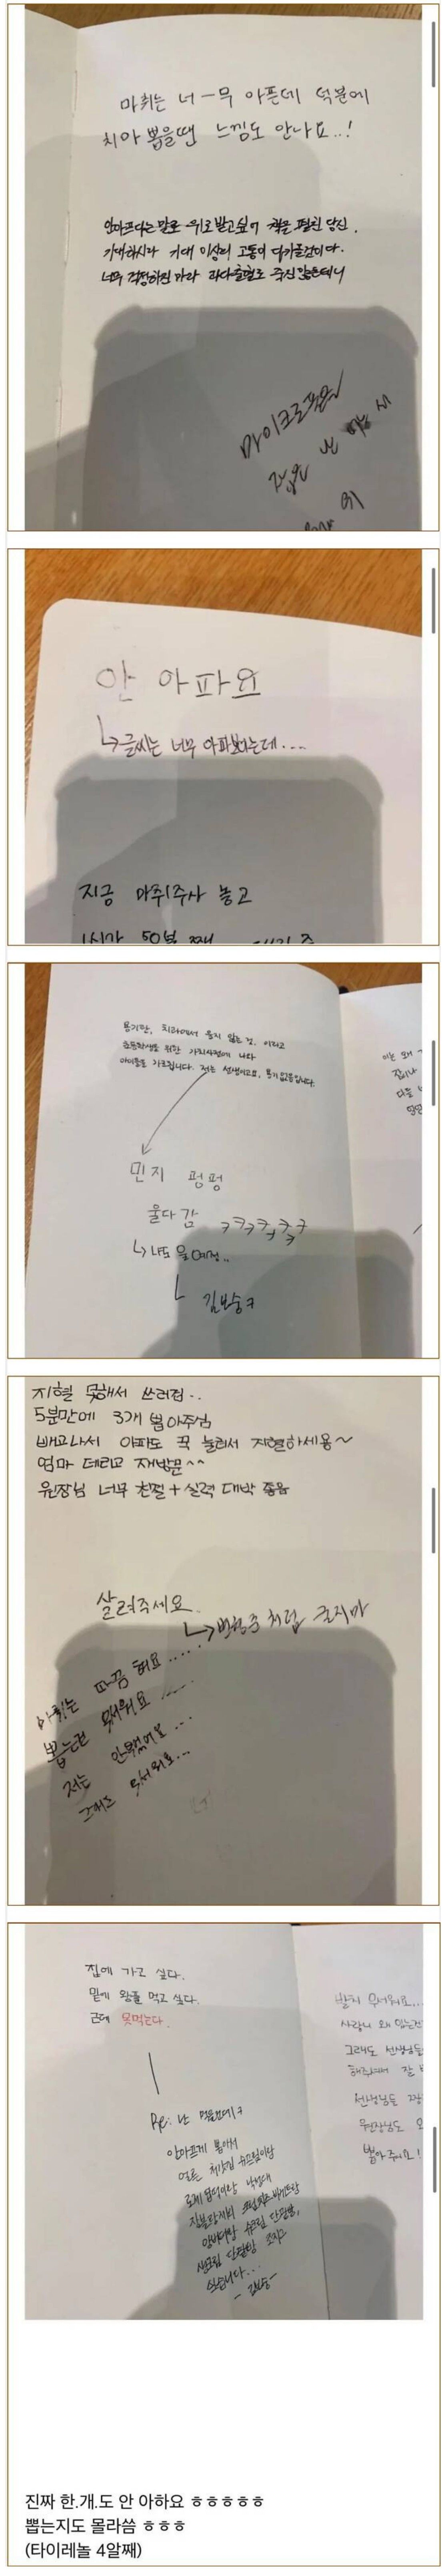 마취는 너-무 아픈데 덕분에
치아 뽑을땐 느낌도 안나요..!
안아프다는말로 위로받고싶어 책을 펼친 당신.
기대하시라 기대 이상의 고통이 다가올것이다.
너무 걱정하진 마라 과다출혈로 죽진 않을테니
마이크로폰을
잡은 난
안 아파요
↳글씨는 너무 아파보이는데....
지금 마취주사 놓고
1시간 50분 째 대기 중
용기란, 치과에서 울지 않는 것, 이라고
초등학생을 위한 가치사전에 나와
아이들을 가르칩니다. 저는 선생이고요, 용기 없음입니다.
민지 펑펑
울다 감 ㅋㅋㅋㅋㅋㅋ
↳나도 울 예정..
김보승ㅋ
이는 왜
지혈 못해서 쓰러짐..
5분만에 3개 뽑아주심
배고파서 아파도 꾹 눌러서 지혈하세용~
엄마 데리고 재방문^^
원장님 너무 친절+실력 대박 좋음
살려주세요.
처럼 굴지마
마취는 따끔 해요.....
뽑는건 무서워요.....
저는 안뽑았어요...
그래도 무서워요...
집에 가고 싶다.
밑에 왕뚜껑 먹고 싶다.
근데 못먹는다.
Re: 난 먹을건데ㅋ
안아프게 뽑아서
얼른 처갓집 슈프림이랑
슈크림 단팥빵,
생크림 단팥빵 조지고
싶습니다...
발치 무서워요...
사랑니 왜 있는건
그래도 선생님들
해주셔서 잘
선생님들 짱
원장님도
뽑아 주세요!
진짜 한.개.도 안 아하요 ㅎㅎㅎㅎㅎ
뽑는지도 몰라씀 ㅎㅎㅎ
(타이레놀 4알째)